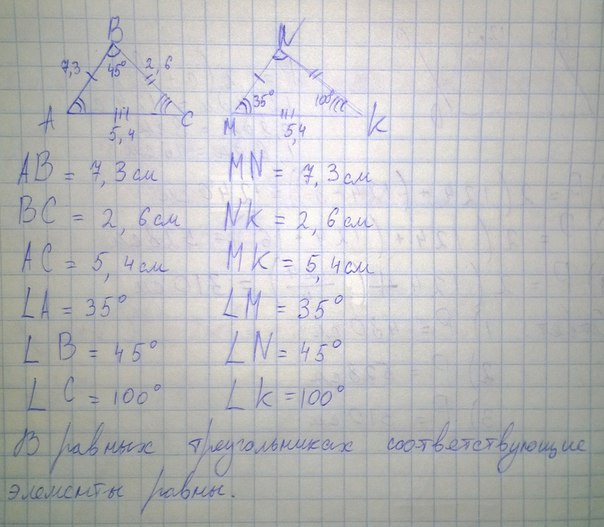 B N
7,3 45° 2,6 35° 100°
A 5,4 C M 5,4 K
AB = 7,3 см MN = 7,3 см
BC = 2,6 см NK = 2,6 см
AC = 5,4 см MK = 5,4 см
∠A = 35° ∠M = 35°
∠B = 45° ∠N = 45°
∠C = 100° ∠K = 100°
В равных треугольниках соответствующие
элементы равны.